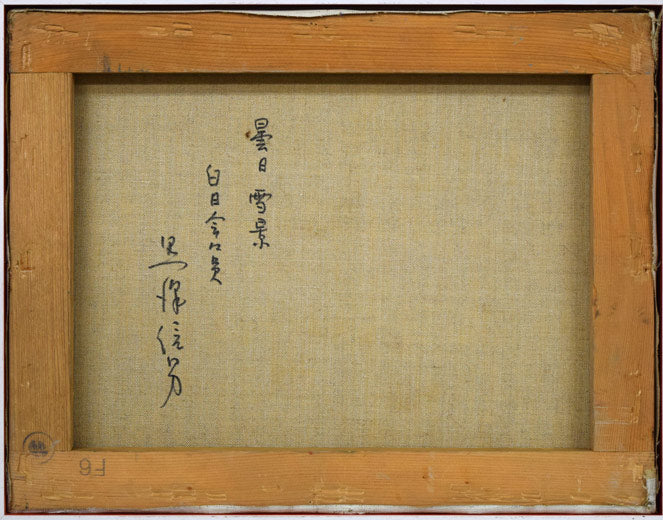 曇日 雪景
白日会員
黒澤信男
F6